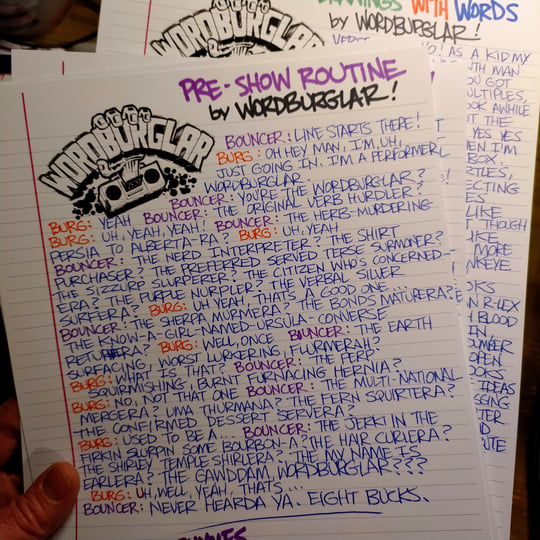 DRAWINGS WITH WORDS
by WORDBURGLAR!
WORDBURGLAR
PRE-SHOW ROUTINE
by WORDBURGLAR!
WORDBURGLAR
BOUNCER: LINE STARTS THERE!
BURG: OH HEY MAN, I'M, UH,
JUST GOING IN. I'M A PERFORMER,
WORDBURGLAR.
BOUNCER: YOU'RE THE WORDBURGLAR?
BURG: YEAH BOUNCER: THE ORIGINAL VERB HURDLER?
BURG: UH, YEAH, YEAH! BOUNCER: THE HERB-MURDERING-
PERSIA TO ALBERTA-RA? BURG: UH, YEAH
BOUNCER: THE NERD INTERPRETER? THE SHIRT
PURCHASER? THE PREFERRED SERVED TERSE SURMONER?
THE SIZZURP SLURPERER? THE CITIZEN WHO'S CONCERNED-
ERA? THE PURPLE NURPLER? THE VERBAL SILVER
SURFERA? BURG: UH YEAH, THAT'S A GOOD ONE...
BOUNCER: THE SHERPA MURMERA? THE BONDS MATURERA?
THE KNOW-A-GIRL-NAMED-URSULA-CONVERSE
RETURERA? BURG: WELL, ONCE BOUNCER: THE EARTH
SURFACING, WORST LURKERING, FLURMERAH?
BURG: WHAT IS THAT? BOUNCER: THE PERP
SQUIRMISHING, BURNT FURNACING HERNIA?
BURG: NO, NOT THAT ONE BOUNCER: THE MULTI-NATIONAL
MERGERA? UMA THURMANA? THE FERN SQUIRTERA?
THE CONFIRMED DESSERT SERVERA?
BURG: USED TO BE A... BOUNCER: THE JERK IN THE
FIRKIN SLURPIN SOME BOURBON-A? THE HAIR CURLERA?
THE SHIRLEY TEMPLE SHIRLERA? THE MY NAME IS
EARLERA? THE GAWDDAM WORDBURGLAR???
BURG: UH, WELL, YEAH, THATS...
BOUNCER: NEVER HEARDA YA. EIGHT BUCKS.
AS A KID MY
MAN
OU GOT
ULTIPLES,
OK AWHILE
THE
YES YES
EN I'M
BOX.
TLES,
ECTING
ES
LIKE
THOUGH
IKE
MORE
NKEYE
OKS
N R-LEX
BLOOD
IN,
UMBER
OPEN
OOKS
IDEAS
GGING
TER
ND
UTE